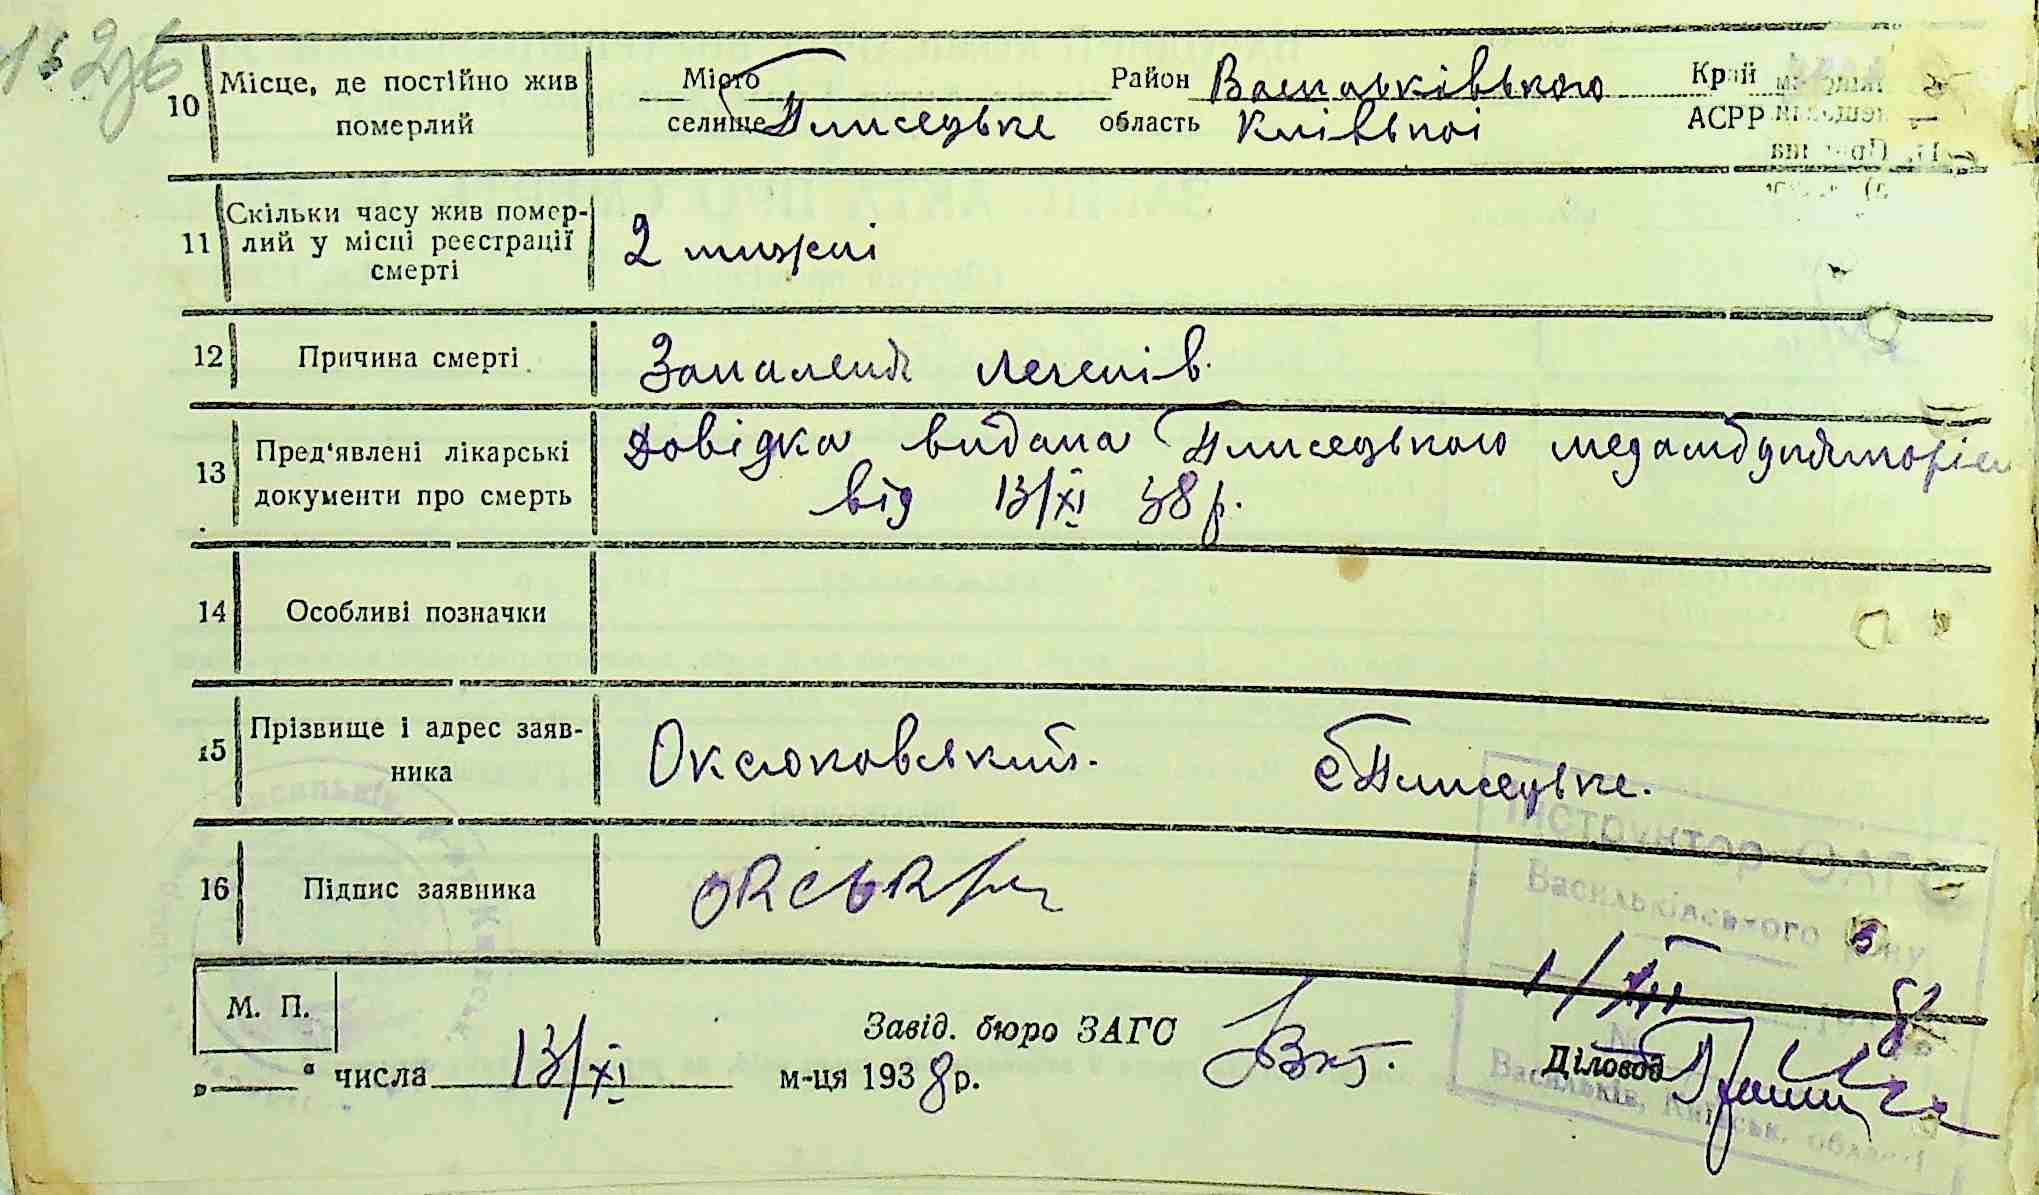 10 Місце, де постійно жив померлий
Місто
селище Плисецьке
Район Васильківського
область Київської
Край
АСРР
11 Скільки часу жив помер-
лий у місці реєстрації
смерті
2 тижні
12 Причина смерті
Запалення легенів.
13 Пред'явлені лікарські
документи про смерть
Довідка видана Плисецькою медамбуляторією
від 13/XI 38 р.
14 Особливі позначки
15 Прізвище і адрес заяв-
ника
Оксюковський. с Плисецьке.
16 Підпис заявника
Інструктор ОАГС
Васильківського р-ну
1/XII
М. П.
Завід. бюро ЗАГС
Діловод
„ “ числа 13/XI м-ця 1938 р.
Васильків, Київськ. області